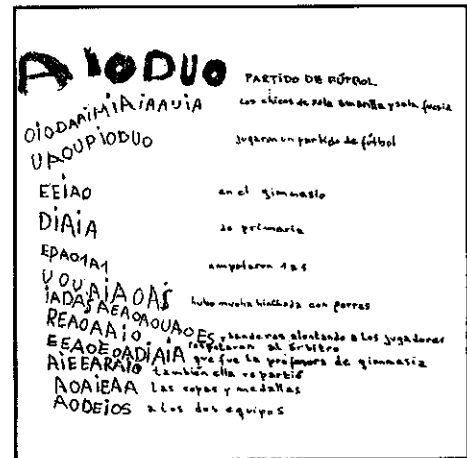 AIODUO PARTIDO DE FÚTBOL
OIODAAIMIAIAAUIA Los chicos de sala amarilla y sala fucsia
UAOUPIODUO jugaron un partido de fútbol
EEIAO en el gimnasio
DIAIA de primaria
EPAO1A1 empataron 1 a 1
UOUAIAOAS hubo mucha hinchada con porras
IADASAEAOAOUAOES, banderas alentando a los jugadores
REAOAAIO respetaron al árbitro
EEAOEOADIAIA que fue la profesora de gimnasia
AIEEARAIO también ella repartió
AOAIEAA las copas y medallas
AODEIOS a los dos equipos